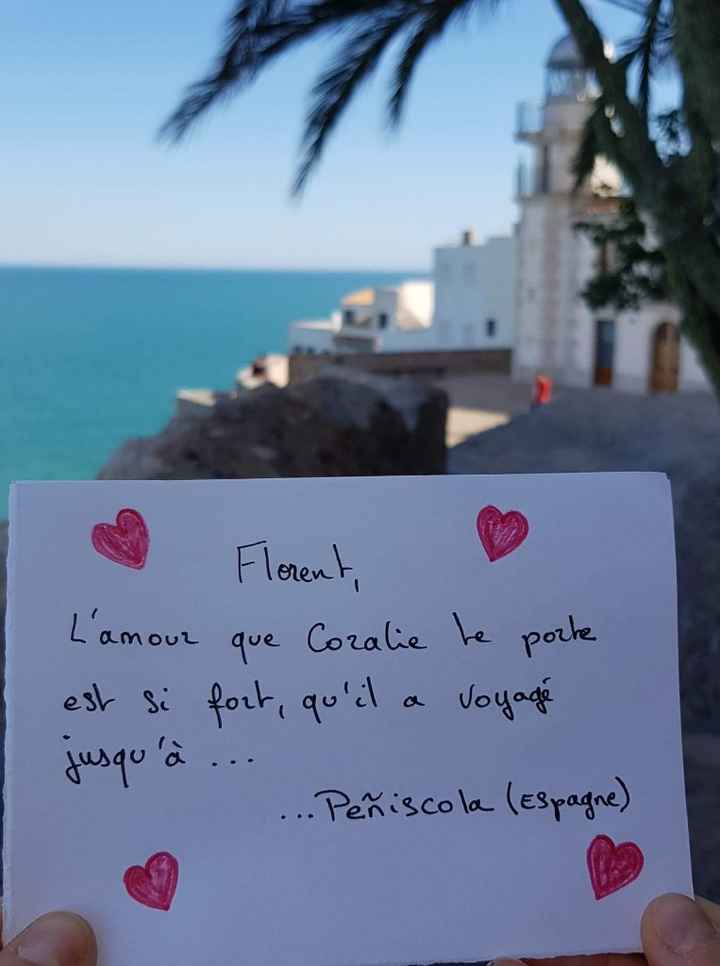 Florent,
L'amour que Coralie te porte
est si fort, qu'il a voyagé
jusqu'à ...
...Peñiscola (Espagne)